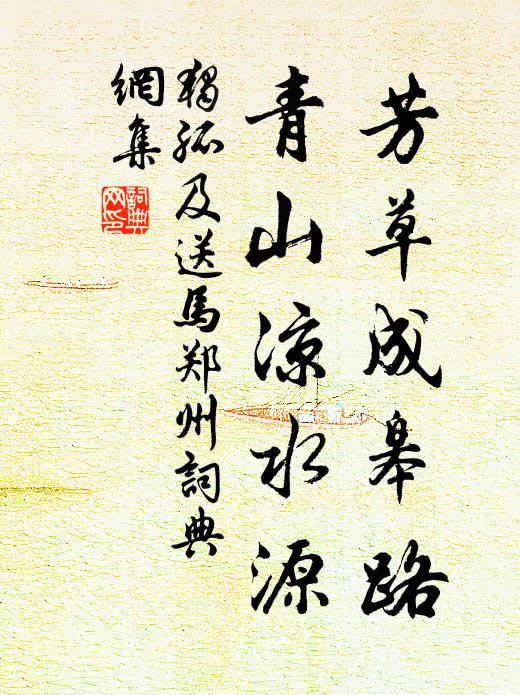 芳草成皋路
青山凉水源
獨孤及送馬郑州詞典
網集
詞典
网印